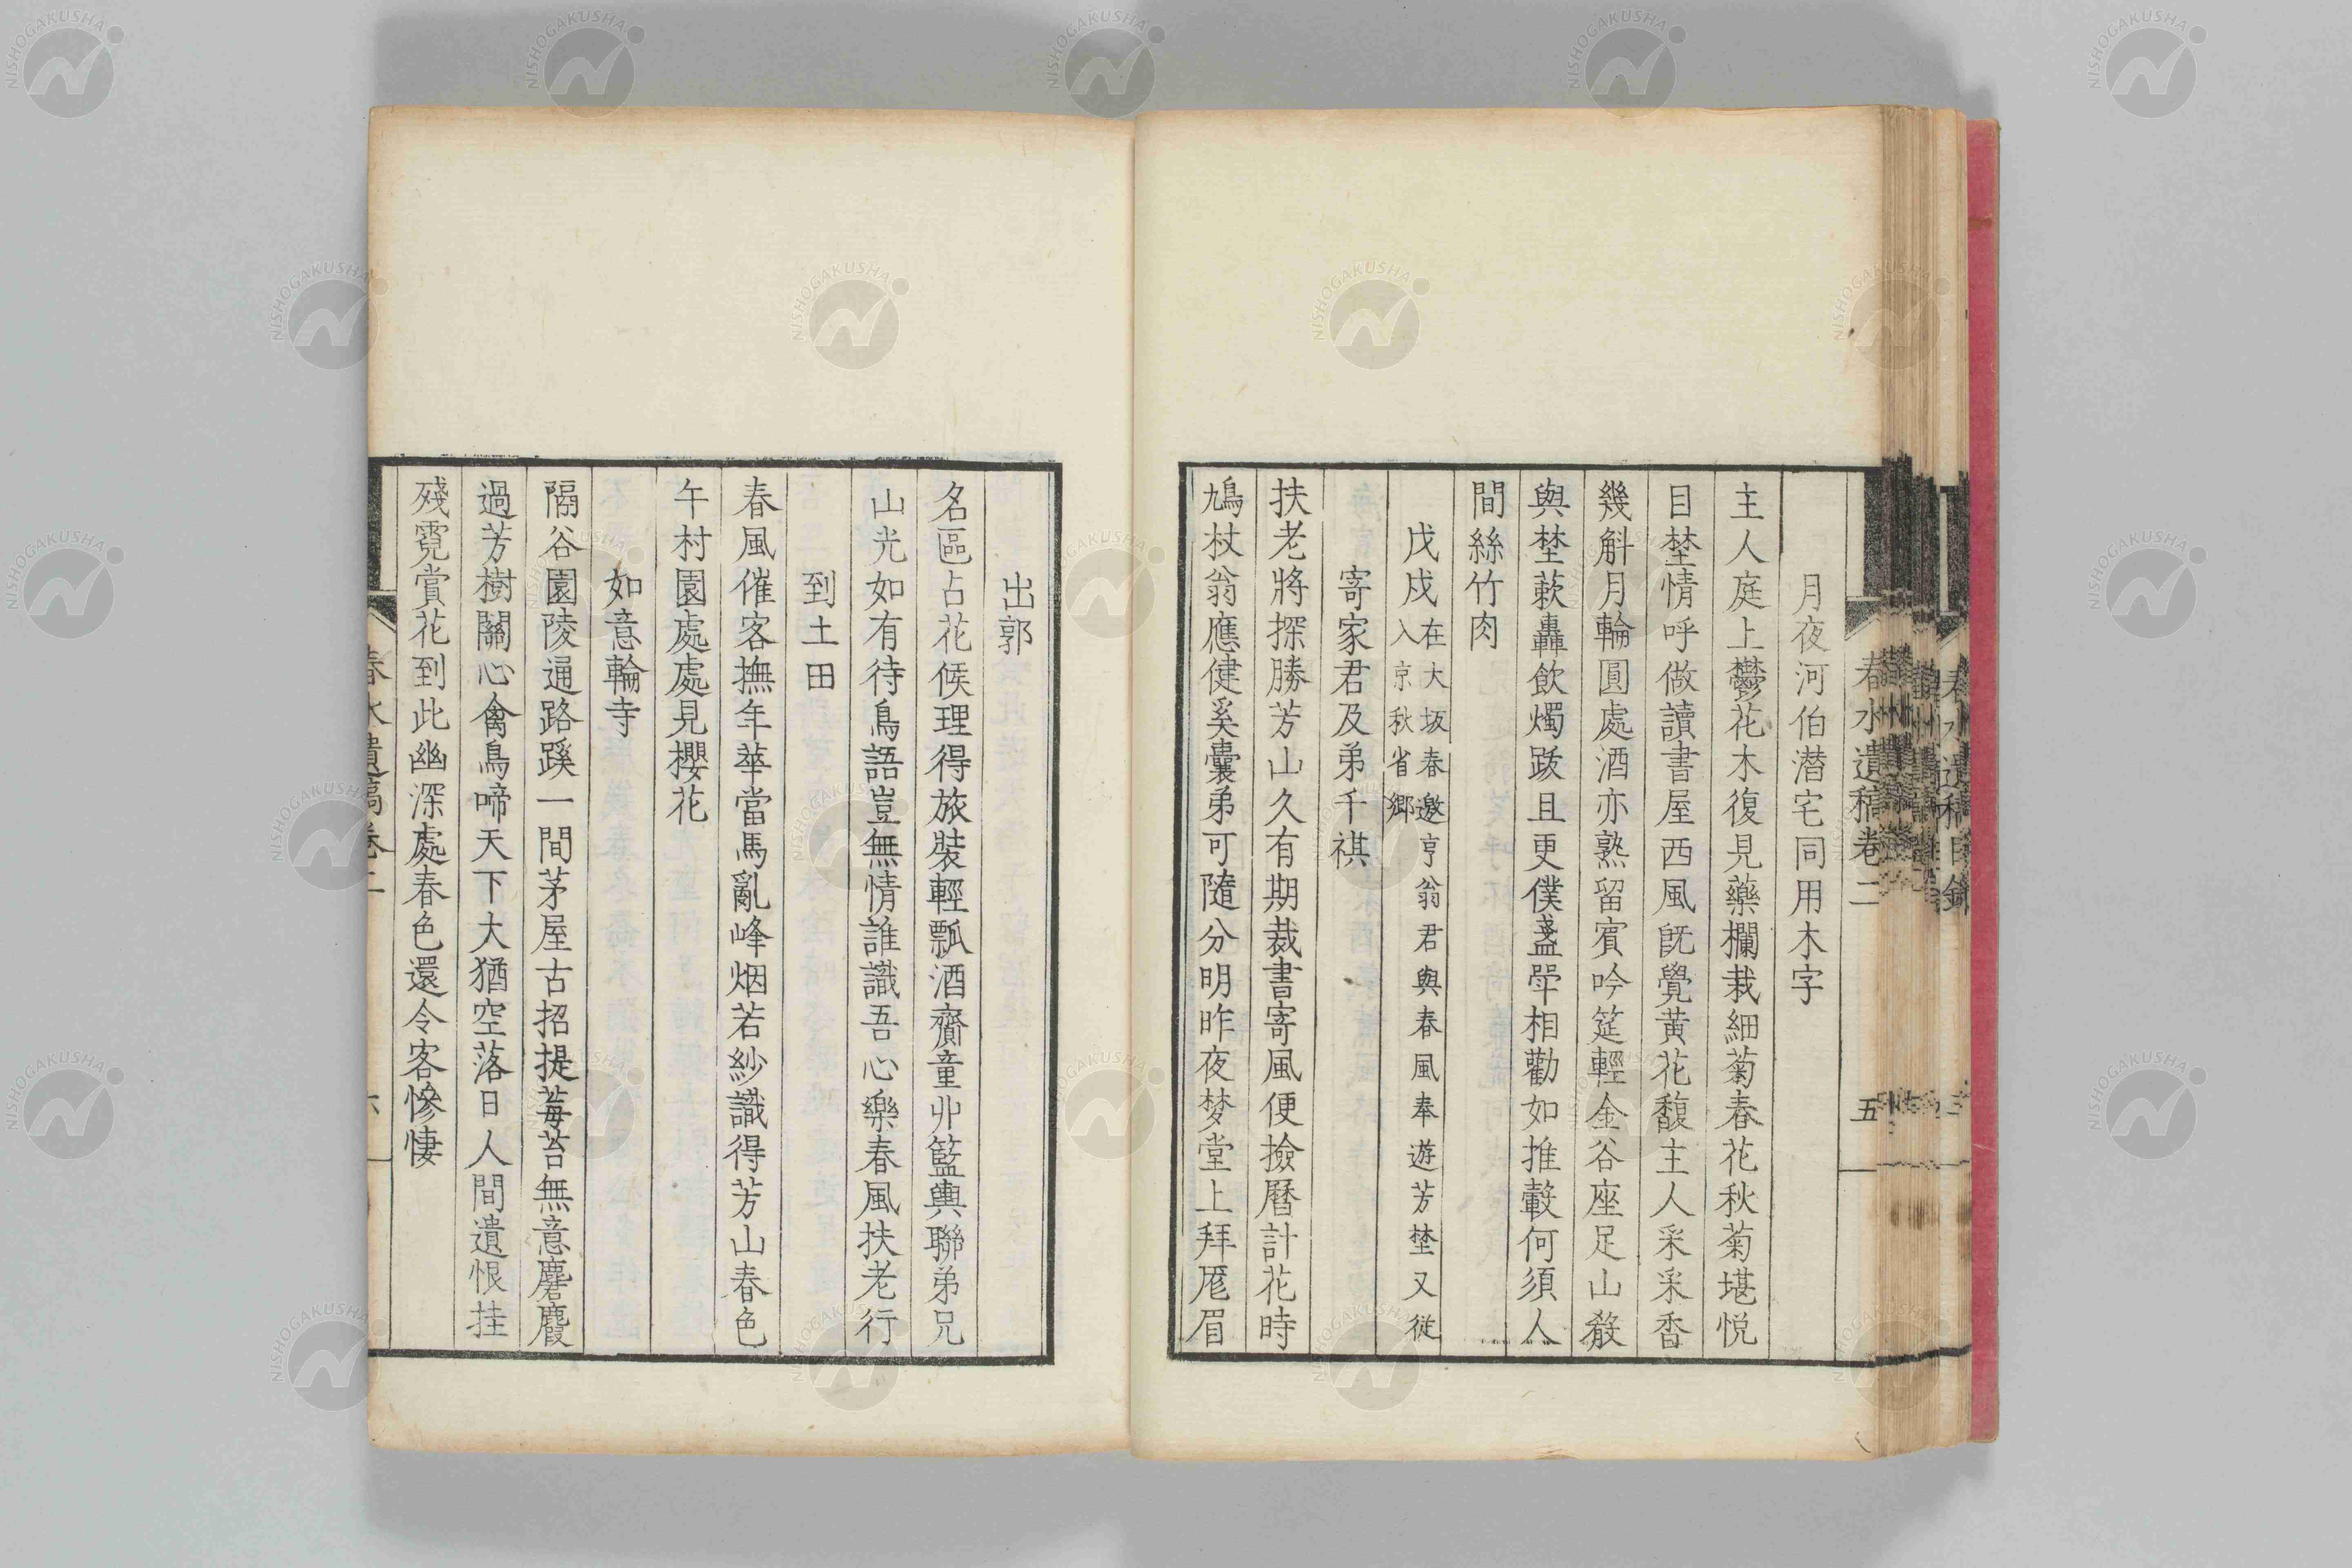 春水遺稿卷二 五
月夜河伯潜宅同用木字
主人庭上欝花木復見藥欄栽細菊春花秋菊堪悦
目埜情呼做讀書屋西風既覺黄花馥主人采采香
幾斛月輪圓處酒亦熟留賓吟筵輕金谷座足山殽
與埜蔌轟飲燭跋且更僕盞斝相勸如推轂何須人
間絲竹肉
戊戌在大坂春邀亨翁君與春風奉遊芳埜又従
入京秋省郷
寄家君及弟千祺
扶老將探勝芳山久有期裁書寄風便撿曆計花時
鳩杖翁應健奚囊弟可隨分明昨夜梦堂上拜厖眉
出郭
名區占花候理得旅裝輕瓢酒齎童丱籃輿聯弟兄
山光如有待鳥語豈無情誰識吾心樂春風扶老行
到土田
春風催客撫年華當馬亂峰烟若紗識得芳山春色
午村園處處見櫻花
如意輪寺
隔谷園陵通路蹊一間茅屋古招提莓苔無意麏麚
過芳樹關心禽鳥啼天下大猶空落日人間遺恨挂
殘霓賞花到此幽深處春色還令客慘悽
春水遺稿卷二
NISHOGAKUSHA